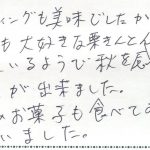 ィングも美味でしたか
も大好きな栗きんとん
いるようで秋を感
が出来ました。
お菓子も食べてみ
いました。